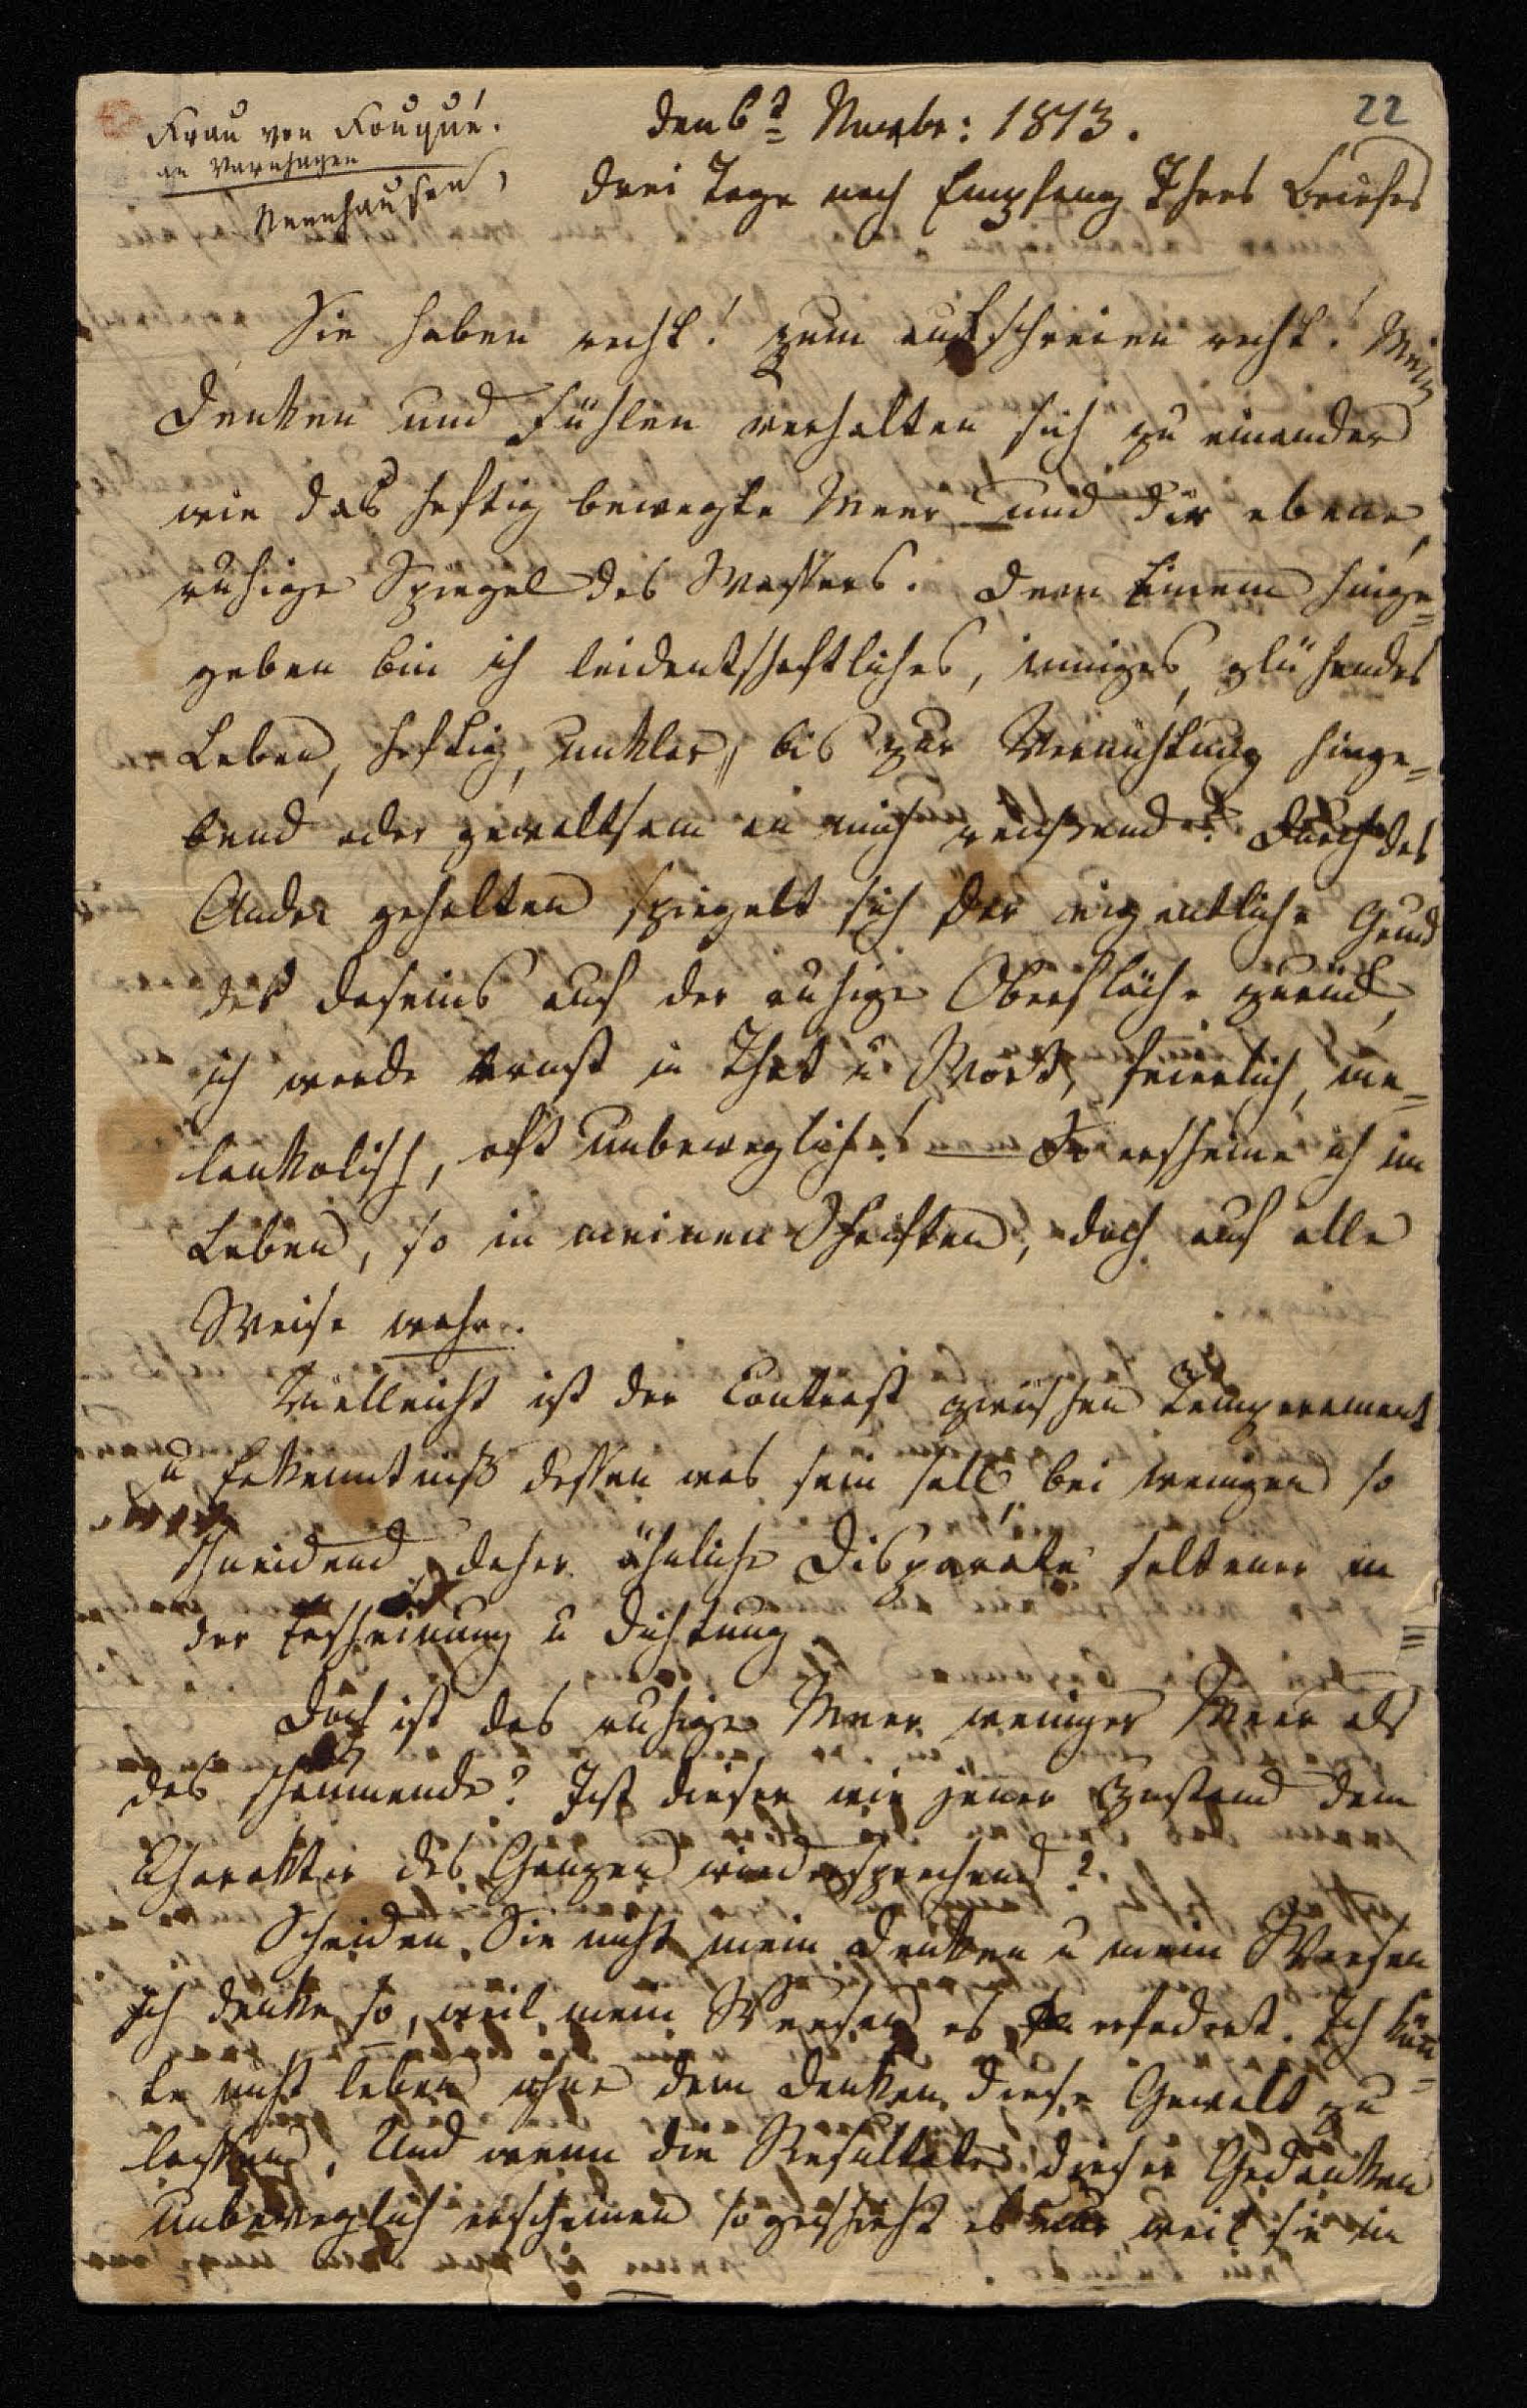 22
Frau von Fouqué.
an Varnhagen
Nennhausen,
den 6t Novbr: 1813.
drei Tage nach Empfang Ihres Briefes
Sie haben recht! zum aufschreien recht! Mein
Denken und Fühlen verhalten sich zu einander
wie das heftig bewegte Meer und der ebene,
ruhige Spiegel des Wassers. Dem Einem hinge=
geben bin ich leidentschaftliches, inniges, glühendes
Leben, heftig, unklar, bis zur Vernichtung hinge=
bend oder gewaltsam an mich reißend. Durch das
Andre gehalten spiegelt sich der eigentliche Grund
des Daseins auf der ruhige Oberfläche zurück,
ich werde ernst in That u Wort, feierlich, me=
lankolisch, oft unbeweglich! — So erscheine ich im
Leben, so in meinen Schriften, doch auf alle
Weise wahr.
Vielleicht ist der Contrast zwischen Temperament
u Erkenntniß dessen was sein soll, bei wenigen so
schneidend, daher ähnliche Disparate seltener in
der Erscheinung u Dichtung.
Doch ist das ruhige Meer weniger Meer als
das schäumende? Ist dieser wie jener Zustand dem
Charakter des Ganzen wiedersprechend?
Scheiden Sie nicht mein Denken u mein Weesen
Ich denke so, weil mein Weesen es erfodert. Ich kön=
te nicht leben ohne dem Denken diese Gewalt zu
lassen. Und wenn die Resultate dieser Gedanken
unbeweglich erscheinen so geschieht es nur weil sie in